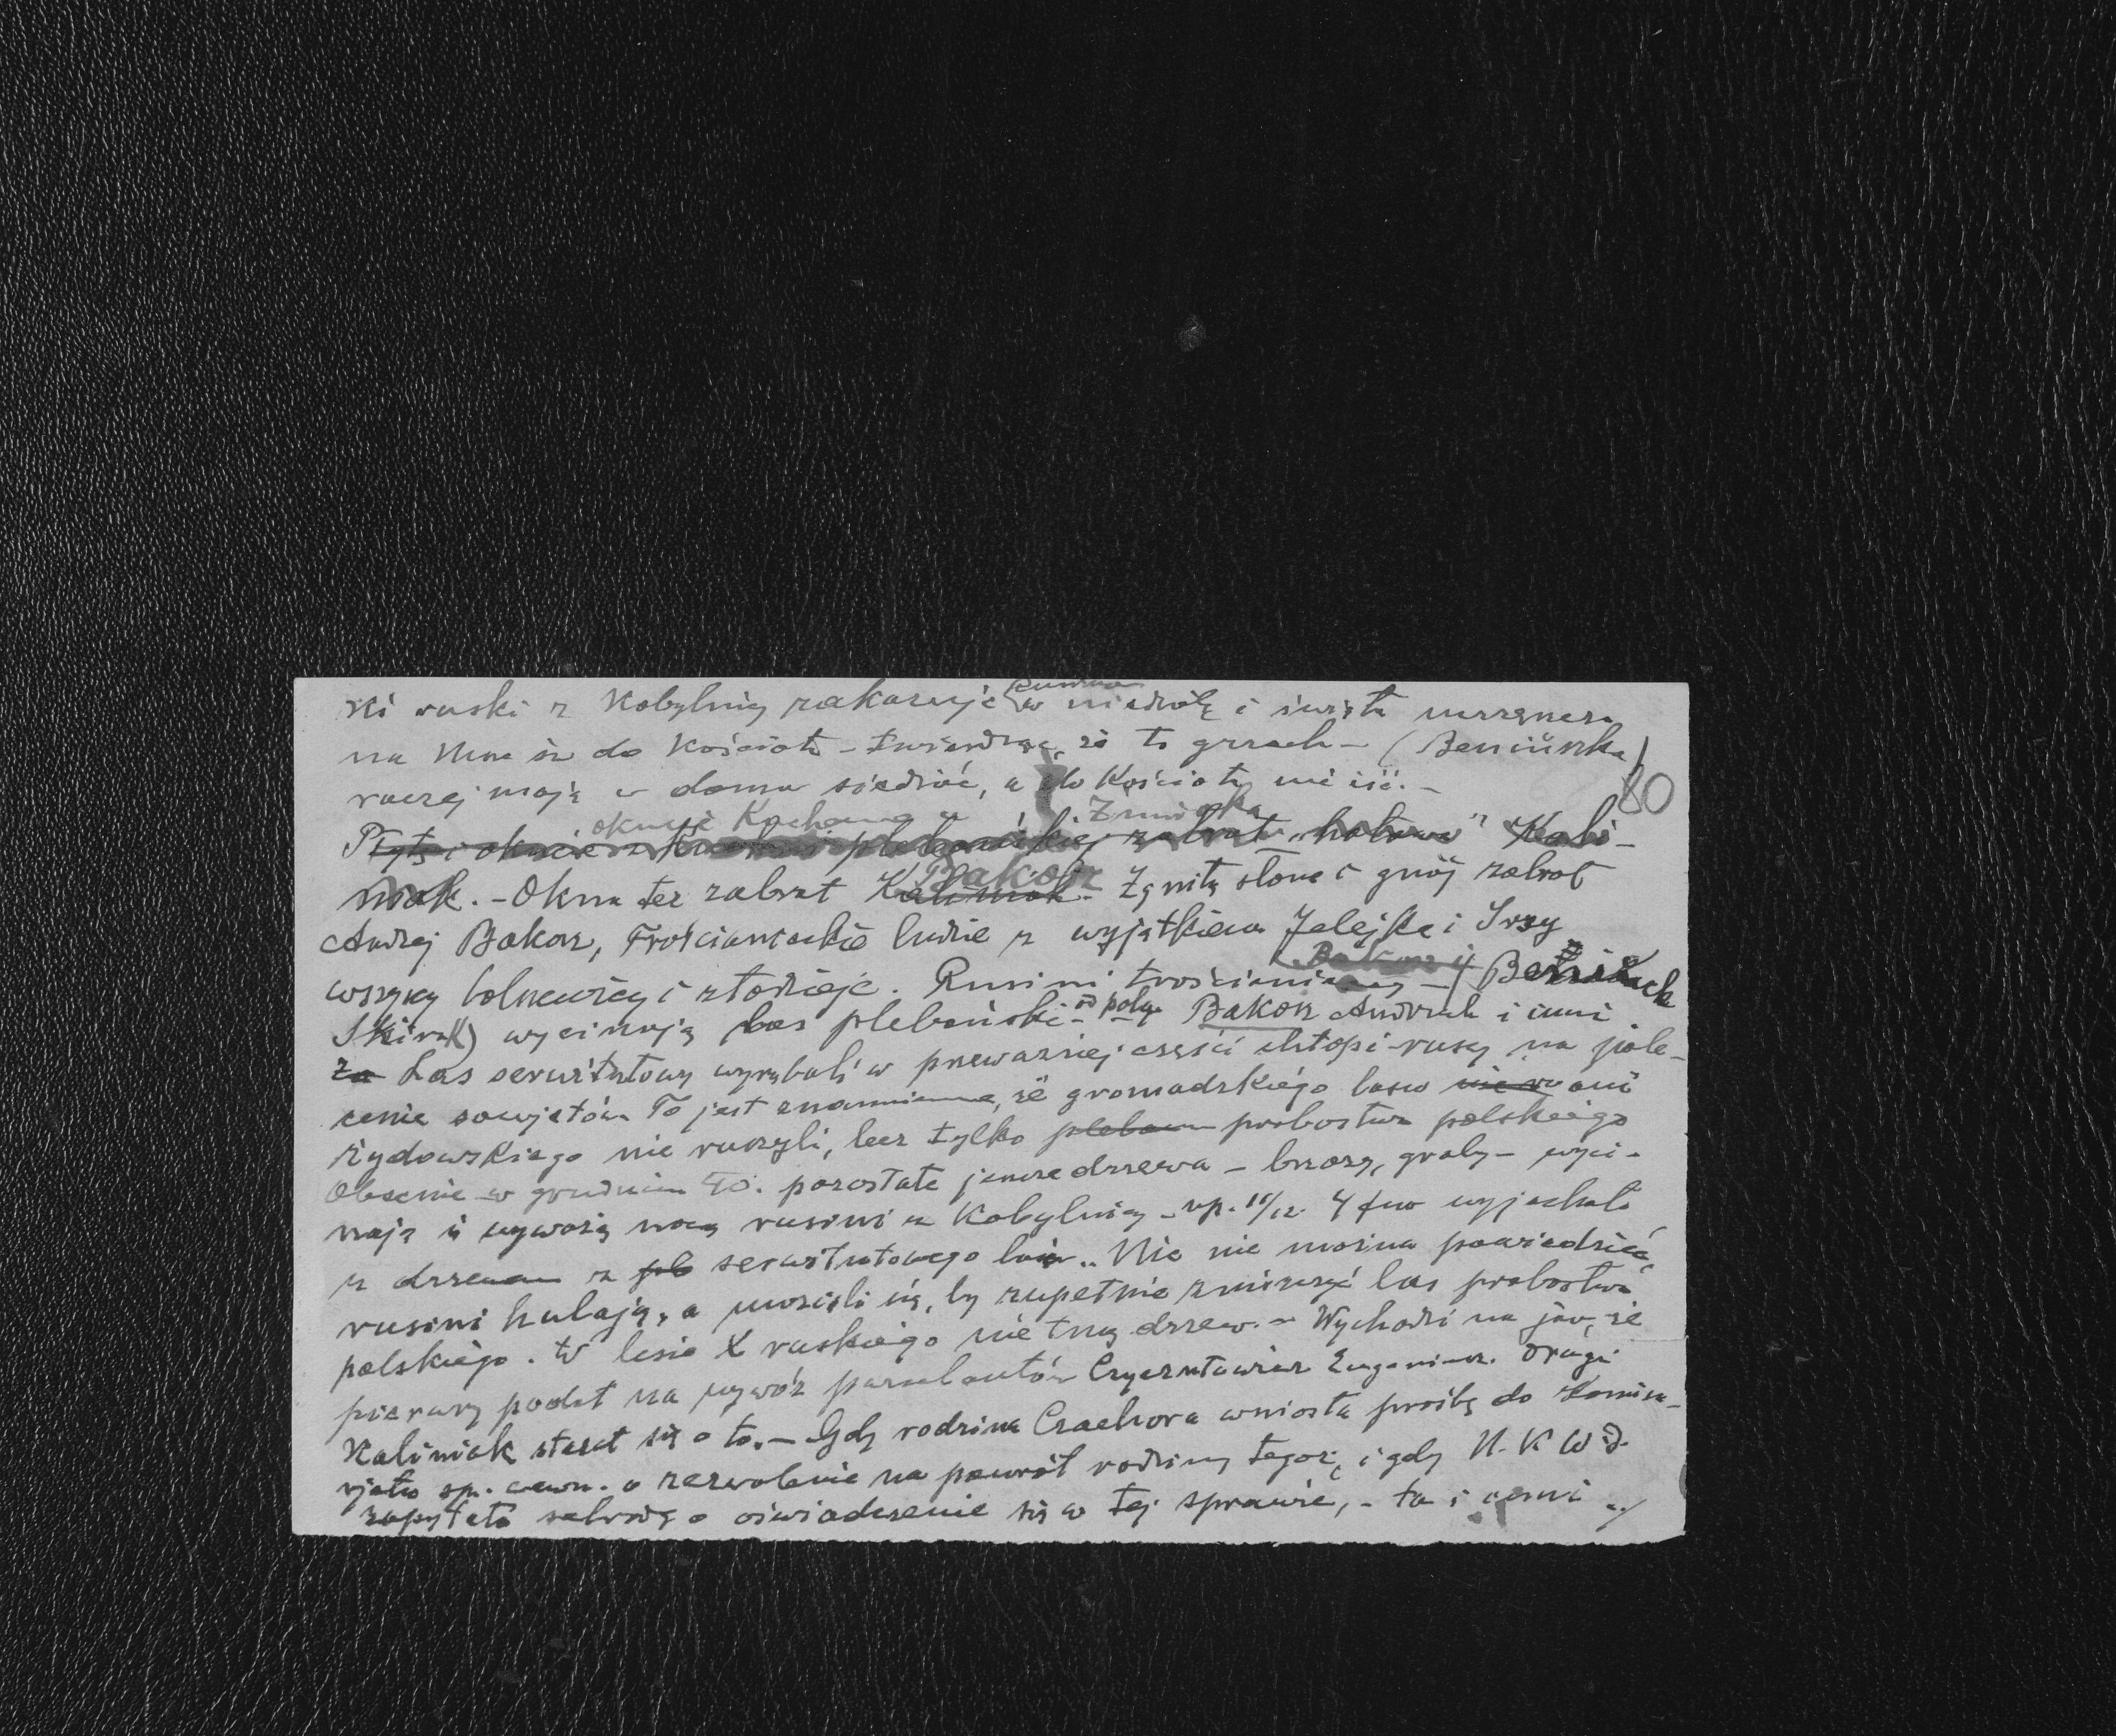 ki ruski z Kobylnicy zakazuje w niedzielę i święta uczęszcz.
na Mszę św do Kościoła - twierdząc, że to grzech - (Beniuszka)
raczej mają w domu siedzieć, a do Kościoła nie iść. -
80
okucie Kochana Żmijka
Płytę i okucie z kuchni plebańskiej zabrał "hołowa" Kali-
niak. - Okna też zabrał Kaliniak. Bakosz Zgniłą słomę i gnój zabrał
Andrzej Bakosz, Trościanieckie ludzie z wyjątkiem Jelejki i
wszyscy bolszewicy i złodzieje. Rusini trościanieccy - (Bakosz i
Skirak) wycinają las plebański - od pola Bakosz Andruch i inni
za Las serwitutowy wyrąbali w przeważnej części chłopi - ruscy na pole-
cenie sowjetów. To jest znamienne, że gromadzkiego lasu nie ani
żydowskiego nie ruszyli, lecz tylko probostwa polskiego
Obecnie w grudniu 40. pozostałe jeszcze drzewa - brzozy, graby - wyci-
nają i wywożą nocą rusini z Kobylnicy - np. 4 fur wyjechało
z drzewem z pl serwitutowego lasu.. Nic nie można powiedzieć,
rusini hulają, a uwzięli się, by zupełnie zniszczyć las probostwa
polskiego. W lesie X ruskiego nie tną drzew. - Wychodzi na jaw, że
pierwszy podał na wywóz parcelantów Eugeniusz. Drugi
Kaliniak starał się o to. - Gdy rodzina Czachora wniosła prośbę do Komisa-
rjatu spr. wewn. o zezwolenie na powrót rodziny tegoż, i gdy N.K.W.D.
zapytało selradę o oświadczenie się w tej sprawie, - ta i